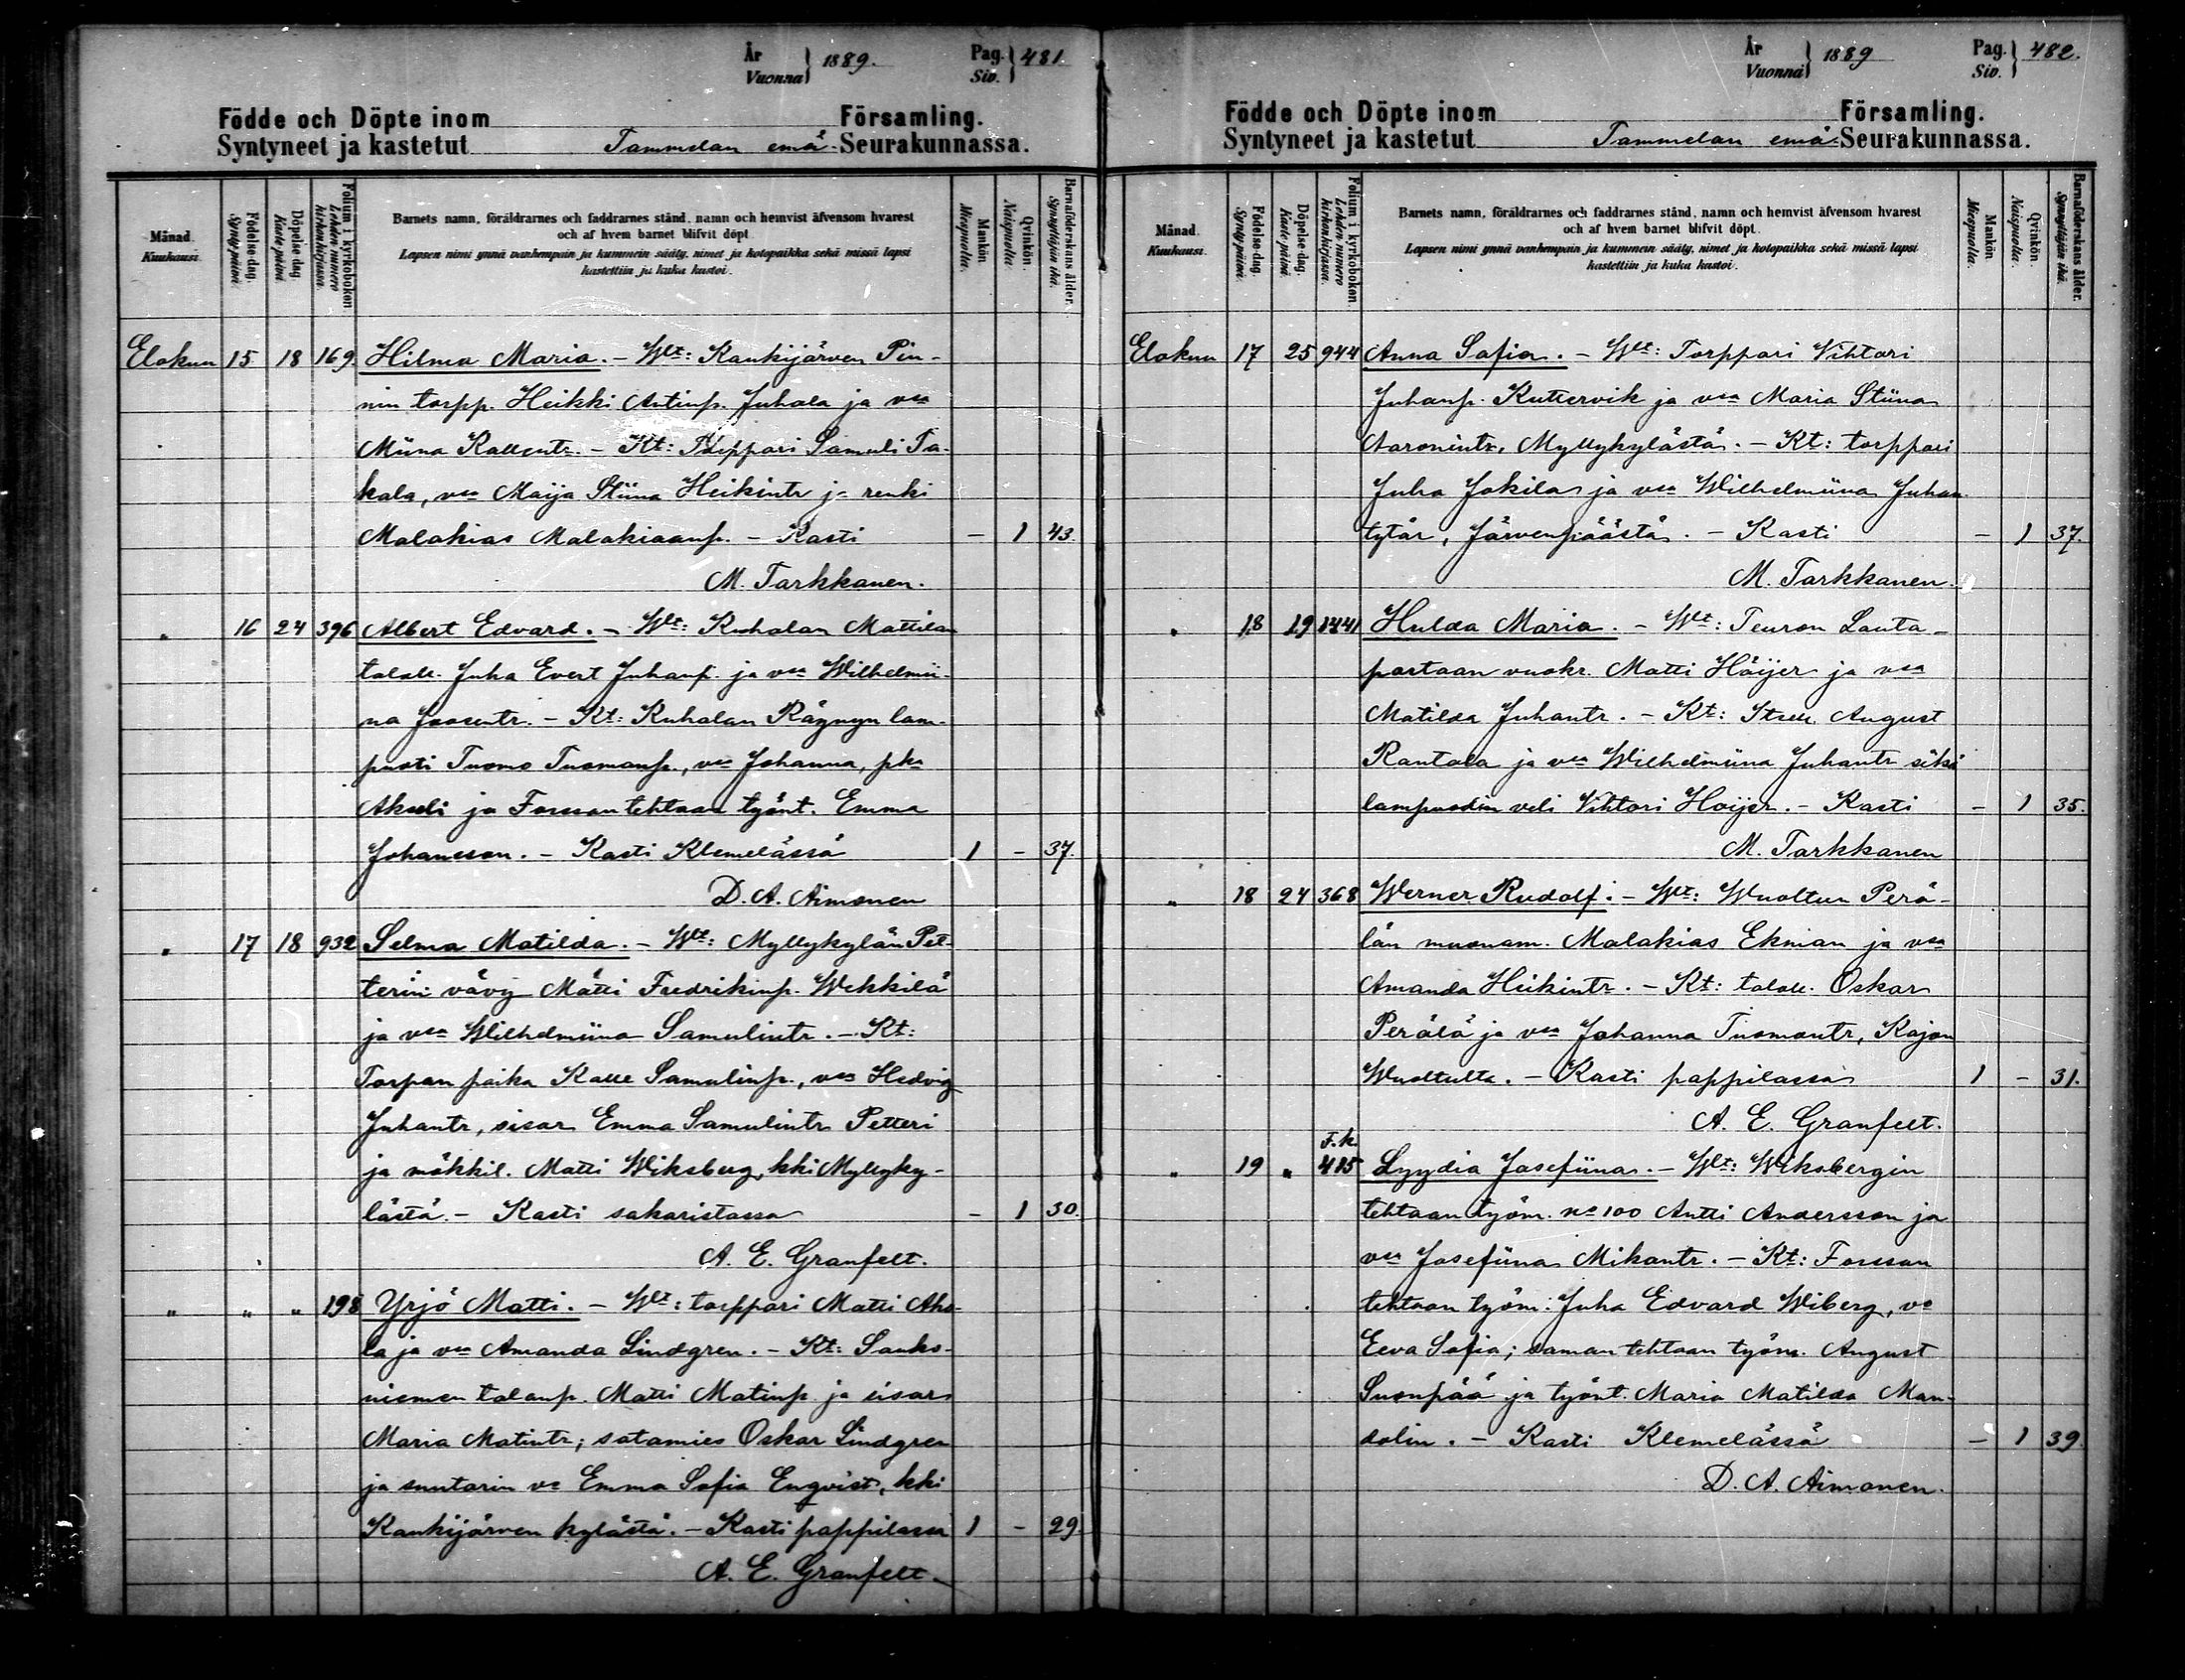 År
Vuonna } 1889.
Pag.
Siv. } 481.
Födde och Döpte inom Församling.
Syntyneet ja kastetut Tammelan emä- Seurakunnassa.
Månad.
Kuukausi.
Födelse-dag.
Synty-päivä.
Döpelse-dag.
Kaste-päivä.
Folium i kyrkoboken
Lehden numero
kirkonkirjassa.
Barnets namn, föräldrarnes och faddrarnes stånd, namn och hemvist äfvensom hvarest
och af hvem barnet blifvit döpt.
Lapsen nimi ynnä vanhempain ja kummein sääty, nimet ja kotopaikka sekä missä lapsi
kastettiin ja kuka kastoi.
Mankön.
Miespuolta.
Qvinkön.
Naispuolta.
Barnaföderskans ålder.
Synnyttäjän ikä.
Elokuu 15 18 169. Hilma Maria. – Wlt: Kaukijärven Pin-
nin torpp. Heikki Antinp. Juhala ja vsa
Miina Kallentr. – Kt: Torppari Samuli Ta-
kala, vsa Maija Stiina Heikintr ja renki
Malakias Malakiaanp. – Kasti – 1 43.
M. Tarkkanen.
" 16 24 396 Albert Edvard. – Wlt: Kuhalan Mattilan
taloll. Juha Evert Juhanp. ja vsa Wilhelmii-
na Joosentr. – Kt: Kuhalan Räynyn lam-
puoti Tuomo Tuomanp., vsa Johanna, pka
Akseli ja Forssan tehtaan työnt. Emma
Johansson. – Kasti Klemelässä 1 – 37.
D. A. Aimonen
" 17 18 932 Selma Matilda. – Wlt: Myllykylän Pet-
terin vävy Matti Fredrikinp. Wekkilä
ja vsa Wilhelmiina Samulintr. – Kt:
Torpan poika Kalle Samulinp., vsa Hedvig
Juhantr, sisar Emma Samulintr Petteri
ja mökkil. Matti Wiksberg, kki Myllyky-
lästä. – Kasti sakaristassa – 1 30.
A. E. Granfelt.
" " " 198 Yrjö Matti. – Wlt: torppari Matti Aho-
la ja vsa Amanda Lindgren. – Kt: Sauko-
niemen talonp. Matti Matinp. ja sisar
Maria Matintr; sotamies Oskar Lindgren
ja suutarin vo Emma Sofia Enqvist, kki
Kaukijärven kylästä. – Kasti pappilassa 1 – 29.
A. E. Granfelt.
År
Vuonna } 1889
Pag.
Siv. } 482.
Födde och Döpte inom Församling.
Syntyneet ja kastetut Tammelan emä- Seurakunnassa.
Månad.
Kuukausi.
Födelse-dag.
Synty-päivä.
Döpelse-dag.
Kaste-päivä.
Folium i kyrkoboken
Lehden numero
kirkonkirjassa.
Barnets namn, föräldrarnes och faddrarnes stånd, namn och hemvist äfvensom hvarest
och af hvem barnet blifvit döpt.
Lapsen nimi ynnä vanhempain ja kummein sääty, nimet ja kotopaikka sekä missä lapsi
kastettiin ja kuka kastoi.
Mankön.
Miespuolta.
Qvinkön.
Naispuolta.
Barnaföderskans ålder.
Synnyttäjän ikä.
Elokuu 17 25 944 Anna Sofia. – Wlt: Torppari Vihtori
Juhanp. Kuttervik ja vsa Maria Stiina
Aaronintr, Myllykylästä. – Kt: torppari
Juha Jokila ja vsa Wilhelmiina Juhan
tytär, Järvenpäästä. – Kasti – 1 37.
M. Tarkkanen.
" 18 19 1441 Hulda Maria. – Wlt: Teuron Lauta-
portaan vuokr. Matti Höijer ja vsa
Matilda Juhantr. – Kt: August
Rantala ja vsa Wilhelmiina Juhantr sekä
lampuodin veli Vihtori Höijer. – Kasti – 1 35.
M. Tarkkanen
" 18 24 368 Werner Rudolf. – Wlt: Wuoltun Perä-
län muonam. Malakias Ekman ja vsa
Amanda Heikintr. – Kt: taloll. Oskar
Perälä ja vsa Johanna Tuomontr, Kojon
Wuoltulta. – Kasti pappilassa 1 – 31.
A. E. Granfelt.
F. k.
" 19 " 415 Lyydia Josefiina. – Wlt: Wiksbergin
tehtaan työm. no 100 Antti Andersson ja
vsa Josefiina Mikontr. – Kt: Forssan
tehtaan työm. Juha Edvard Wiberg, vo
Eeva Sofia; saman tehtaan työm. August
Suonpää ja työnt. Maria Matilda Man-
dolin. – Kasti Klemelässä – 1 39.
D. A. Aimonen.